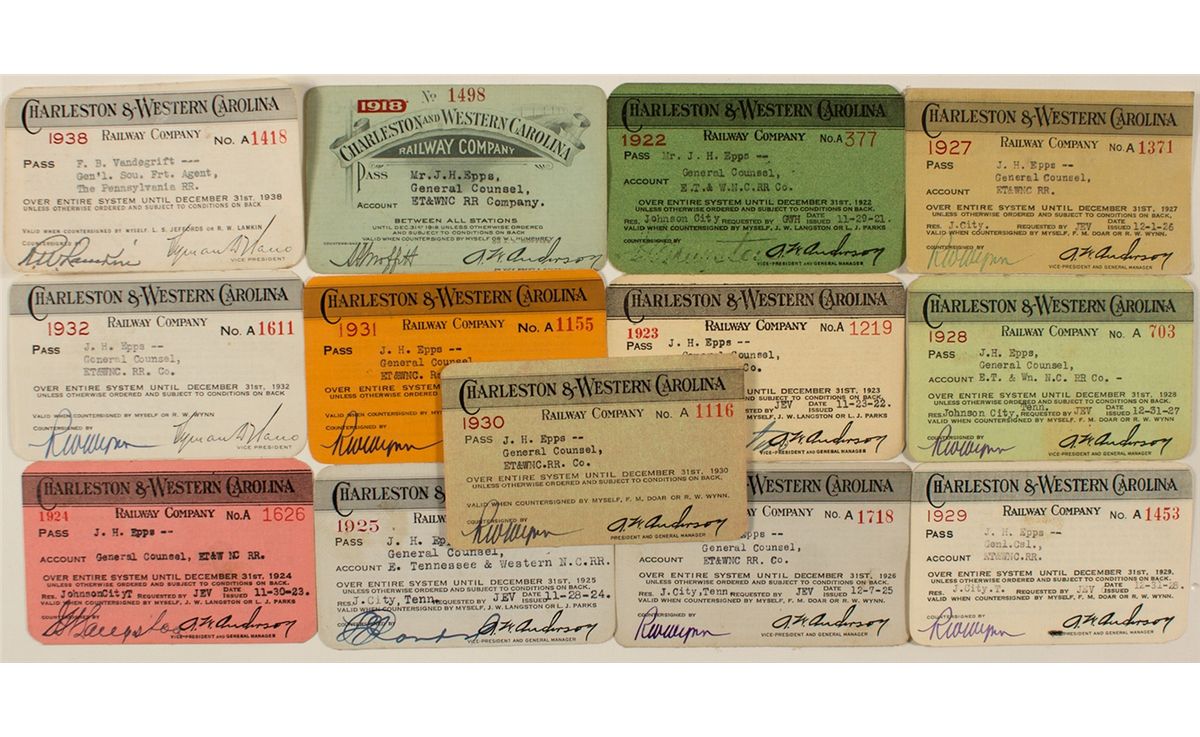 CHARLESTON & WESTERN CAROLINA
1938 RAILWAY COMPANY NO. A 1418
PASS F. B. Vandegrift ---
Gen'l. Sou. Frt. Agent,
The Pennsylvania RR.
OVER ENTIRE SYSTEM UNTIL DECEMBER 31ST, 1938
UNLESS OTHERWISE ORDERED AND SUBJECT TO CONDITIONS ON BACK.
VALID WHEN COUNTERSIGNED BY MYSELF. L. S. JEFFORDS OR R. W. LAMKIN
COUNTERSIGNED BY
VICE PRESIDENT
1918 No 1498
CHARLESTON AND WESTERN CAROLINA
RAILWAY COMPANY
PASS Mr. J.H.Epps,
General Counsel,
ACCOUNT ET&WNC RR Company.
BETWEEN ALL STATIONS
UNTIL DEC. 31ST 1918 UNLESS OTHERWISE
ORDERED AND SUBJECT TO CONDITIONS ON BACK
VALID WHEN COUNTERSIGNED BY MYSELF OR W L HUMPHREY
COUNTERSIGNED BY
A.W. Anderson
CHARLESTON & WESTERN CAROLINA
1922 RAILWAY COMPANY No. A 377
PASS Mr. J. H. Epps --
General Counsel,
ACCOUNT E.T.& W.N.C.RR Co.
OVER ENTIRE SYSTEM UNTIL DECEMBER 31ST, 1922
UNLESS OTHERWISE ORDERED AND SUBJECT TO CONDITIONS ON BACK.
RES. Johnson City REQUESTED BY GWH DATE ISSUED 11-29-21.
VALID WHEN COUNTERSIGNED BY MYSELF, J. W. LANGSTON OR L. J. PARKS
COUNTERSIGNED BY
A.W. Anderson
VICE-PRESIDENT AND GENERAL MANAGER
CHARLESTON & WESTERN CAROLINA
1927 RAILWAY COMPANY No. A 1371
PASS J. H. Epps --
General Counsel,
ACCOUNT ET&WNC RR.
OVER ENTIRE SYSTEM UNTIL DECEMBER 31ST, 1927
UNLESS OTHERWISE ORDERED AND SUBJECT TO CONDITIONS ON BACK.
RES. J.City. REQUESTED BY JEV DATE ISSUED 12-1-26
VALID WHEN COUNTERSIGNED BY MYSELF, F. M. DOAR OR R. W. WYNN.
COUNTERSIGNED BY
R W Wynn A.W. Anderson
VICE-PRESIDENT AND GENERAL MANAGER
CHARLESTON & WESTERN CAROLINA
1932 RAILWAY COMPANY No. A 1611
PASS J. H. Epps --
General Counsel,
ET&WNC. RR. Co.
OVER ENTIRE SYSTEM UNTIL DECEMBER 31ST, 1932
UNLESS OTHERWISE ORDERED AND SUBJECT TO CONDITIONS ON BACK.
VALID WHEN COUNTERSIGNED BY MYSELF OR R. W. WYNN
COUNTERSIGNED BY
R W Wynn
VICE PRESIDENT
CHARLESTON & WESTERN CAROLINA
1931 RAILWAY COMPANY No. A 1155
PASS J. H. Epps --
General Counsel
ET&WNC. R
OVER ENTIRE SYSTEM UNTIL
UNLESS OTHERWISE ORDERED AND
VALID WHEN COUNTERSIGNED BY
COUNTERSIGNED BY
R W Wynn
CHARLESTON & WESTERN CAROLINA
1923 RAILWAY COMPANY No. A 1219
PASS J. H. Epps --
General Counsel,
Co.
DECEMBER 31ST, 1923
CONDITIONS ON BACK.
JEV DATE ISSUED 11-23-22.
MYSELF, J. W. LANGSTON OR L. J. PARKS
A.W. Anderson
VICE-PRESIDENT AND GENERAL MANAGER
CHARLESTON & WESTERN CAROLINA
1928 RAILWAY COMPANY No. A 703
PASS J.H. Epps,
General Counsel,
ACCOUNT E.T. & Wn. N.C. RR Co. -
OVER ENTIRE SYSTEM UNTIL DECEMBER 31ST, 1928
UNLESS OTHERWISE ORDERED AND SUBJECT TO CONDITIONS ON BACK.
RES. Johnson City, Tenn. REQUESTED BY JEV DATE ISSUED 12-31-27
VALID WHEN COUNTERSIGNED BY MYSELF, F. M. DOAR OR R. W. WYNN.
COUNTERSIGNED BY
R W Wynn A.W. Anderson
VICE-PRESIDENT AND GENERAL MANAGER
CHARLESTON & WESTERN CAROLINA
1930 RAILWAY COMPANY NO. A 1116
PASS J. H. Epps --
General Counsel,
ET&WNC.RR. Co.
OVER ENTIRE SYSTEM UNTIL DECEMBER 31ST, 1930
UNLESS OTHERWISE ORDERED AND SUBJECT TO CONDITIONS ON BACK.
VALID WHEN COUNTERSIGNED BY MYSELF, F. M. DOAR OR R. W. WYNN.
COUNTERSIGNED BY
R W Wynn A.W. Anderson
PRESIDENT AND GENERAL MANAGER
CHARLESTON & WESTERN CAROLINA
1924 RAILWAY COMPANY No. A 1626
PASS J. H. Epps --
ACCOUNT General Counsel, ET&WNC RR.
OVER ENTIRE SYSTEM UNTIL DECEMBER 31ST, 1924
UNLESS OTHERWISE ORDERED AND SUBJECT TO CONDITIONS ON BACK.
RES. JohnsonCityT REQUESTED BY JEV DATE ISSUED 11-30-23.
VALID WHEN COUNTERSIGNED BY MYSELF, J. W. LANGSTON OR L. J. PARKS
COUNTERSIGNED BY
A.W. Anderson
VICE-PRESIDENT AND GENERAL MANAGER
CHARLESTON
1925 RAILW
PASS J. H. Ep
General Counsel,
ACCOUNT E. Tennessee & Western N.C.RR.
OVER ENTIRE SYSTEM UNTIL DECEMBER 31ST, 1925
UNLESS OTHERWISE ORDERED AND SUBJECT TO CONDITIONS ON BACK.
RES. J.City, Tenn. REQUESTED BY JEV DATE ISSUED 11-28-24.
VALID WHEN COUNTERSIGNED BY MYSELF, J. W. LANGSTON OR L. J. PARKS
COUNTERSIGNED BY
A.W. Anderson
VICE-PRESIDENT AND GENERAL MANAGER
WESTERN CAROLINA
NY No. A 1718
pps --
General Counsel,
ACCOUNT ET&WNC. RR.
OVER ENTIRE SYSTEM UNTIL DECEMBER 31ST, 1926
UNLESS OTHERWISE ORDERED AND SUBJECT TO CONDITIONS ON BACK.
RES. J.City,Tenn REQUESTED BY JEV DATE ISSUED 12-7-25
VALID WHEN COUNTERSIGNED BY MYSELF, F. M. DOAR OR R. W. WYNN.
COUNTERSIGNED BY
R W Wynn A.W. Anderson
VICE-PRESIDENT AND GENERAL MANAGER
CHARLESTON & WESTERN CAROLINA
1929 RAILWAY COMPANY No. A 1453
PASS J. H. Epps --
Genl.Csl.,
ACCOUNT ET&WNC.RR.
OVER ENTIRE SYSTEM UNTIL DECEMBER 31ST, 1929.
UNLESS OTHERWISE ORDERED AND SUBJECT TO CONDITIONS ON BACK.
RES. J.City.T. REQUESTED BY JEV DATE ISSUED 12-31-28
VALID WHEN COUNTERSIGNED BY MYSELF, F. M. DOAR OR R. W. WYNN.
COUNTERSIGNED BY
R W Wynn A.W. Anderson
PRESIDENT AND GENERAL MANAGER